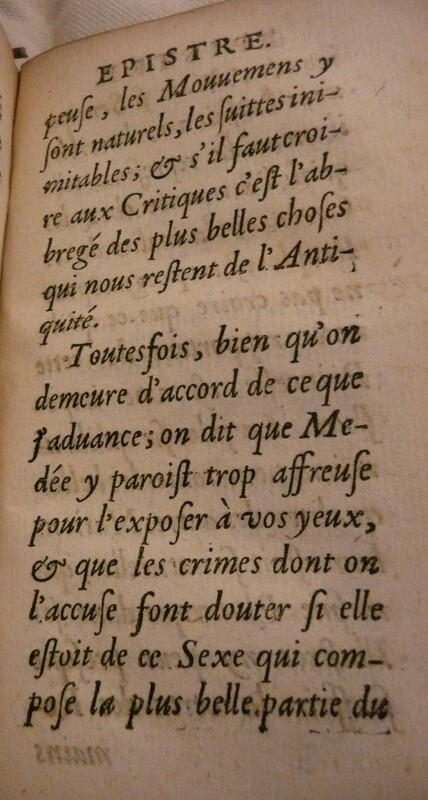 EPISTRE.
peuſe, les Mouuemens y
ſont naturels, les ſuittes ini-
mitables; & s'il faut croi-
re aux Critiques c'eſt l'ab-
bregé des plus belles choſes
qui nous reſtent de l'Anti-
quité.
Toutesfois, bien qu'on
demeure d'accord de ce que
j'aduance; on dit que Me-
dée y paroiſt trop affreuſe
pour l'expoſer à vos yeux,
& que les crimes dont on
l'accuſe font douter ſi elle
eſtoit de ce Sexe qui com-
poſe la plus belle partie du